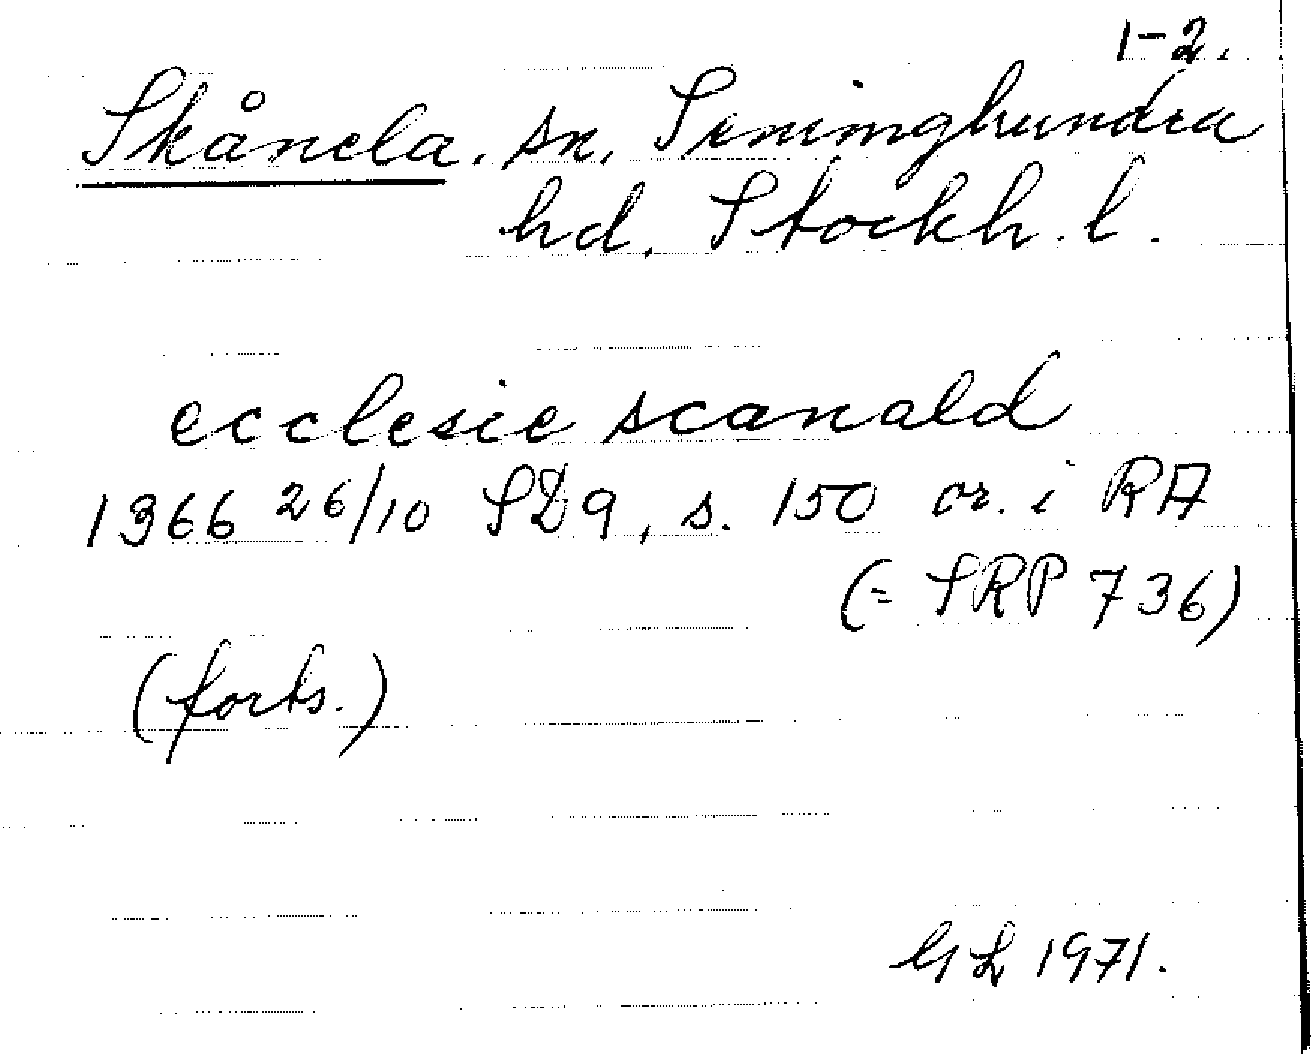 1-2.
Skånela. sn. Seminghundra
hd. Stockh. l.
ecclesie scanald
1366 26/10 SD9, s. 150 or. i RA
(= SRP 736)
(forts.)
GL 1971.